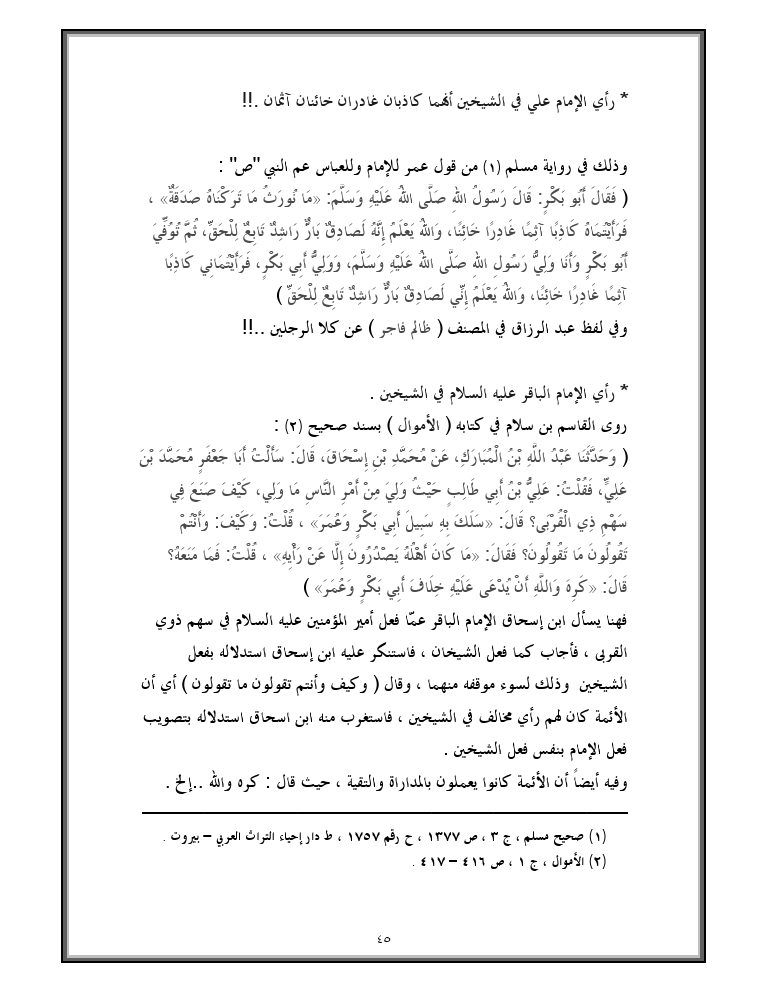 * رأي الإمام علي في الشيخين أنهما كاذبان غادران خائنان آثمان .!!
وذلك في رواية مسلم (١) من قول عمر للإمام وللعباس عم النبي "ص" :
( فَقَالَ أَبُو بَكْرٍ: قَالَ رَسُولُ اللهِ صَلَّى اللهُ عَلَيْهِ وَسَلَّمَ: «مَا نُورَثُ مَا تَرَكْنَاهُ صَدَقَةٌ» ،
فَرَأَيْتُمَاهُ كَاذِبًا آثِمًا غَادِرًا خَائِنًا، وَاللهُ يَعْلَمُ إِنَّهُ لَصَادِقٌ بَارٌّ رَاشِدٌ تَابِعٌ لِلْحَقِّ، ثُمَّ تُوُفِّيَ
أَبُو بَكْرٍ وَأَنَا وَلِيُّ رَسُولِ اللهِ صَلَّى اللهُ عَلَيْهِ وَسَلَّمَ، وَوَلِيُّ أَبِي بَكْرٍ، فَرَأَيْتُمَانِي كَاذِبًا
آثِمًا غَادِرًا خَائِنًا، وَاللهُ يَعْلَمُ إِنِّي لَصَادِقٌ بَارٌّ رَاشِدٌ تَابِعٌ لِلْحَقِّ )
وفي لفظ عبد الرزاق في المصنف ( ظالم فاجر ) عن كلا الرجلين ..!!
* رأي الإمام الباقر عليه السلام في الشيخين .
روى القاسم بن سلام في كتابه ( الأموال ) بسند صحيح (٢) :
( وَحَدَّثَنَا عَبْدُ اللَّهِ بْنُ الْمُبَارَكِ، عَنْ مُحَمَّدِ بْنِ إِسْحَاقَ، قَالَ: سَأَلْتُ أَبَا جَعْفَرٍ مُحَمَّدَ بْنَ
عَلِيٍّ، فَقُلْتُ: عَلِيُّ بْنُ أَبِي طَالِبٍ حَيْثُ وَلِيَ مِنْ أَمْرِ النَّاسِ مَا وَلِي، كَيْفَ صَنَعَ فِي
سَهْمِ ذِي الْقُرْبَى؟ قَالَ: «سَلَكَ بِهِ سَبِيلَ أَبِي بَكْرٍ وَعُمَرَ» ، قُلْتُ: وَكَيْفَ: وَأَنْتُمْ
تَقُولُونَ مَا تَقُولُونَ؟ فَقَالَ: «مَا كَانَ أَهْلُهُ يَصْدُرُونَ إِلَّا عَنْ رَأْيِهِ» ، قُلْتُ: فَمَا مَنَعَهُ؟
قَالَ: «كَرِهَ وَاللَّهِ أَنْ يُدْعَى عَلَيْهِ خِلَافَ أَبِي بَكْرٍ وَعُمَرَ» )
فهنا يسأل ابن إسحاق الإمام الباقر عمّا فعل أمير المؤمنين عليه السلام في سهم ذوي
القربى ، فأجاب كما فعل الشيخان ، فاستنكر عليه ابن إسحاق استدلاله بفعل
الشيخين وذلك لسوء موقفه منهما ، وقال ( وكيف وأنتم تقولون ما تقولون ) أي أن
الأئمة كان لهم رأي مخالف في الشيخين ، فاستغرب منه ابن اسحاق استدلاله بتصويب
فعل الإمام بنفس فعل الشيخين .
وفيه أيضاً أن الأئمة كانوا يعملون بالمداراة والتقية ، حيث قال : كره والله ..إلخ .
(١) صحيح مسلم ، ج ٣ ، ص ١٣٧٧ ، ح رقم ١٧٥٧ ، ط دار إحياء التراث العربي – بيروت .
(٢) الأموال ، ج ١ ، ص ٤١٦ – ٤١٧ .
٤٥